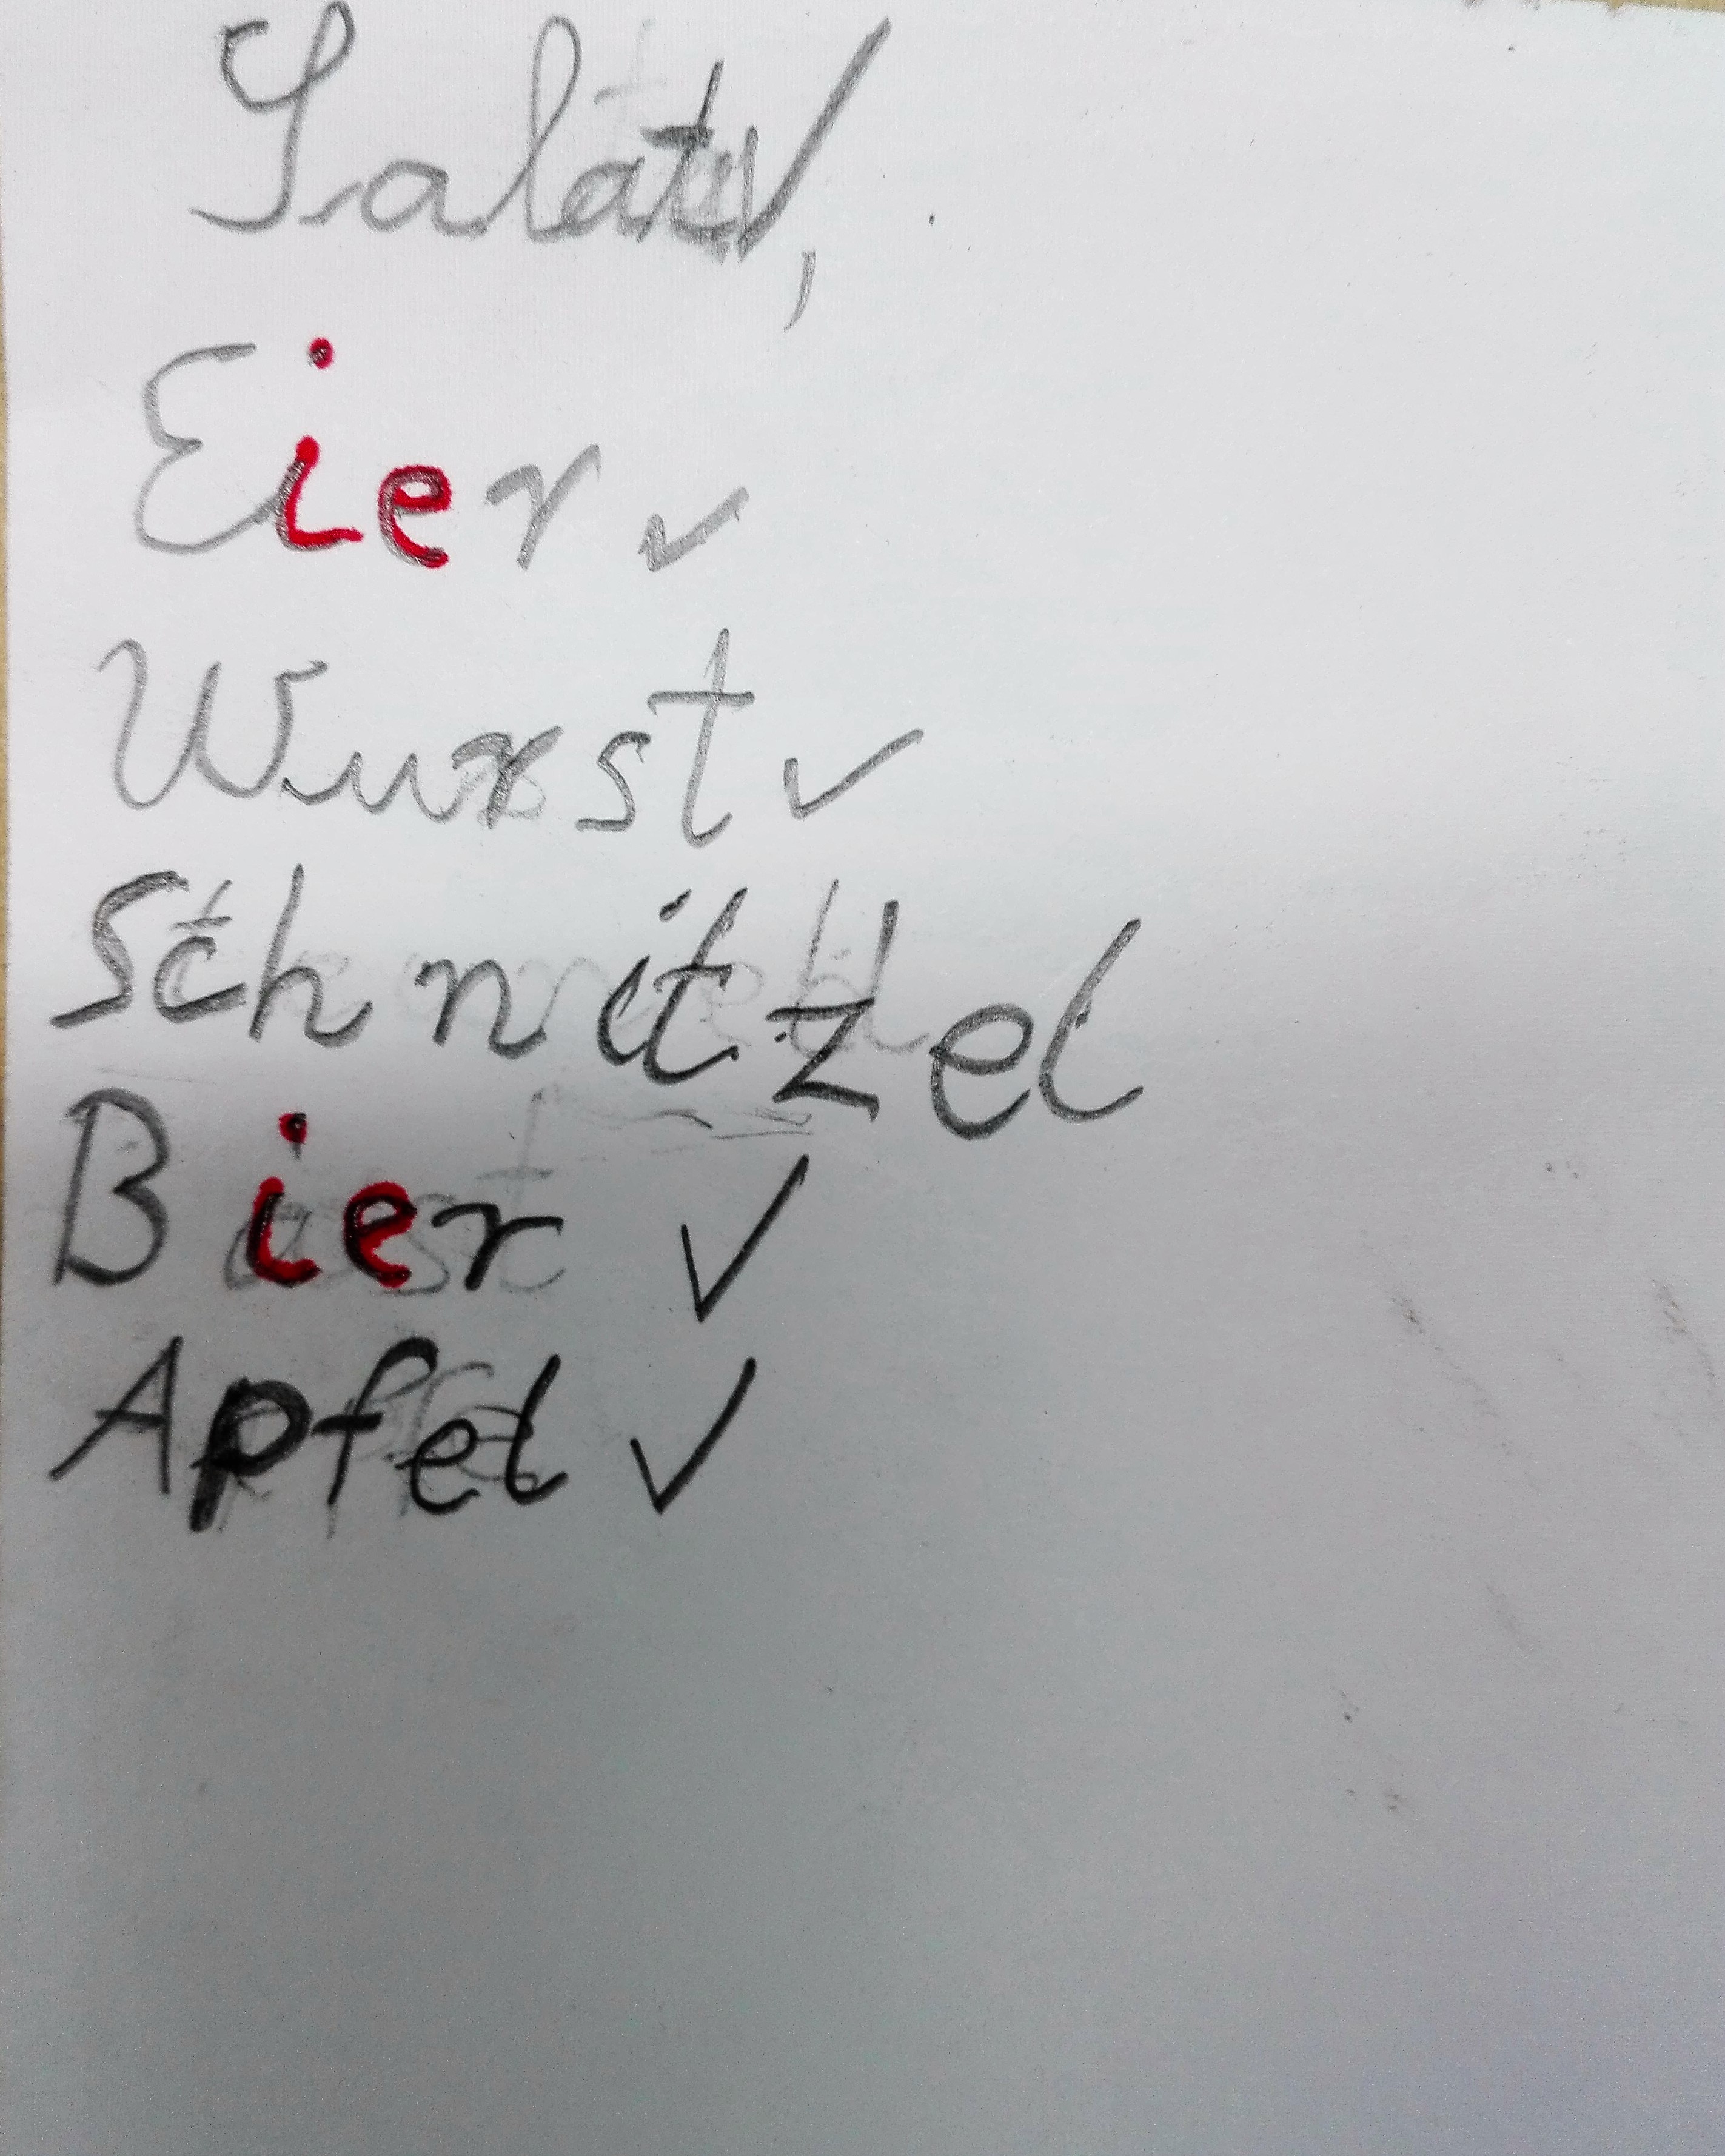 Salat ✓,
Eier ✓
Wurst ✓
Schnitzel
Bier ✓
Apfel ✓